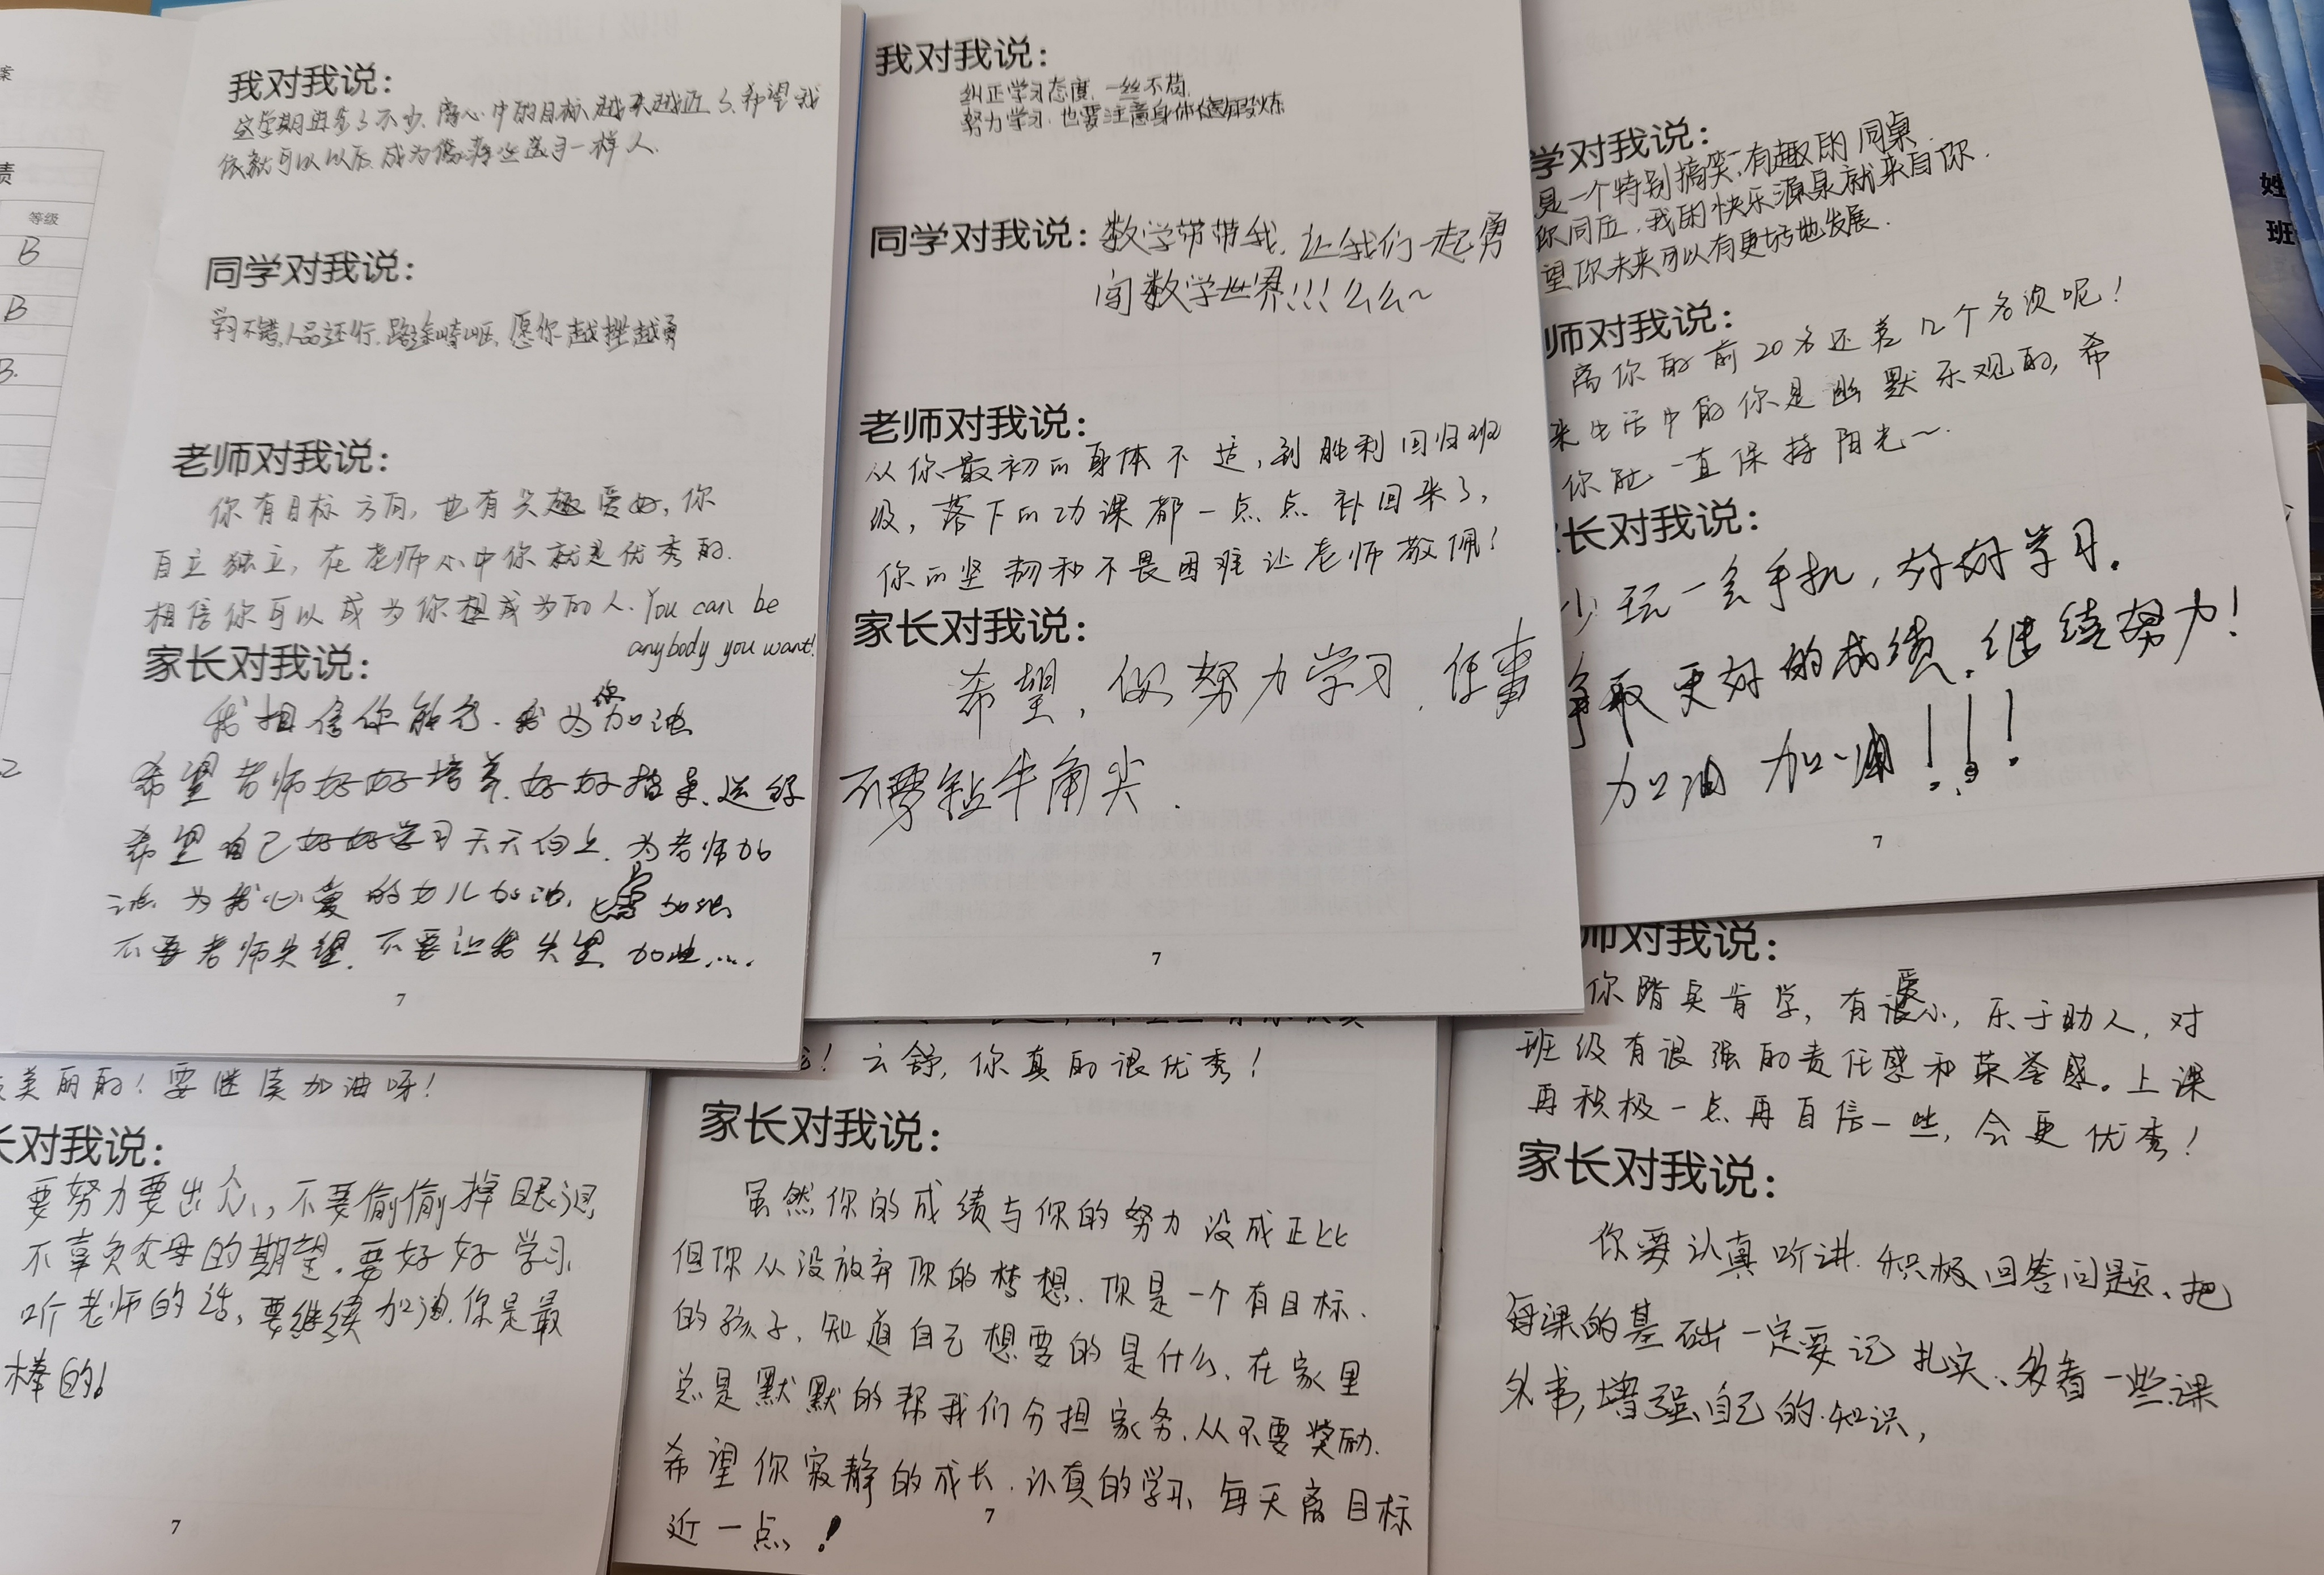 案
绩
等级
B
B
B.
我对我说：
这学期进步了不少,离心中的目标越来越近了,希望我
依就可以以后成为像 一样人.
同学对我说：
学习不错,人品还行,路途崎岖,愿你越挫越勇
老师对我说：
你有目标方向,也有兴趣爱好,你
自立独立,在老师心中你就是优秀的.
相信你可以成为你想成为的人.You can be
anybody you want!
家长对我说：
我相信你能行.我为你加油
希望老师好好培养.好好指导.
希望自己好好学习天天向上.为老师加
油.为我心爱的女儿加油. 加油
不要老师失望.不要让我失望 加油....
7
我对我说：
纠正学习态度,一丝不苟,
努力学习,也要注意身体健康锻炼
同学对我说：数学带带我,让我们一起勇
闯数学世界!!!么么~
老师对我说：
从你最初的身体不适,到胜利回归班
级,落下的功课都一点点补回来了,
你的坚韧和不畏困难让老师敬佩!
家长对我说：
希望,你努力学习.做事
不要钻牛角尖.
7
学对我说：
是一个特别搞笑,有趣的同桌
你同位,我的快乐源泉就来自你.
望你未来可以有更好地发展.
师对我说：
离你的前20名还差几个名次呢!
来生活中的你是幽默乐观的,希
你能一直保持阳光~.
长对我说：
少玩一会手机,好好学习.
争取更好的成绩.继续努力!
加油 加油!!!
7
姓
班
美丽的!要继续加油呀!
长对我说：
要努力要出众,不要偷偷掉眼泪,
不辜负父母的期望.要好好学习,
听老师的话,要继续加油.你是最
棒的!
7
!云舒,你真的很优秀!
家长对我说：
虽然你的成绩与你的努力没成正比
但你从没放弃你的梦想.你是一个有目标.
的孩子,知道自己想要的是什么,在家里
总是默默的帮我们分担家务.从不要奖励.
希望你寂静的成长.认真的学习,每天离目标
近一点!
7
师对我说：
你踏实肯学,有爱心,乐于助人,对
班级有很强的责任感和荣誉感。上课
再积极一点再自信一些,会更优秀!
家长对我说：
你要认真听讲.积极回答问题、把
每课的基础一定要记扎实、多看一些课
外书,增强自己的知识,